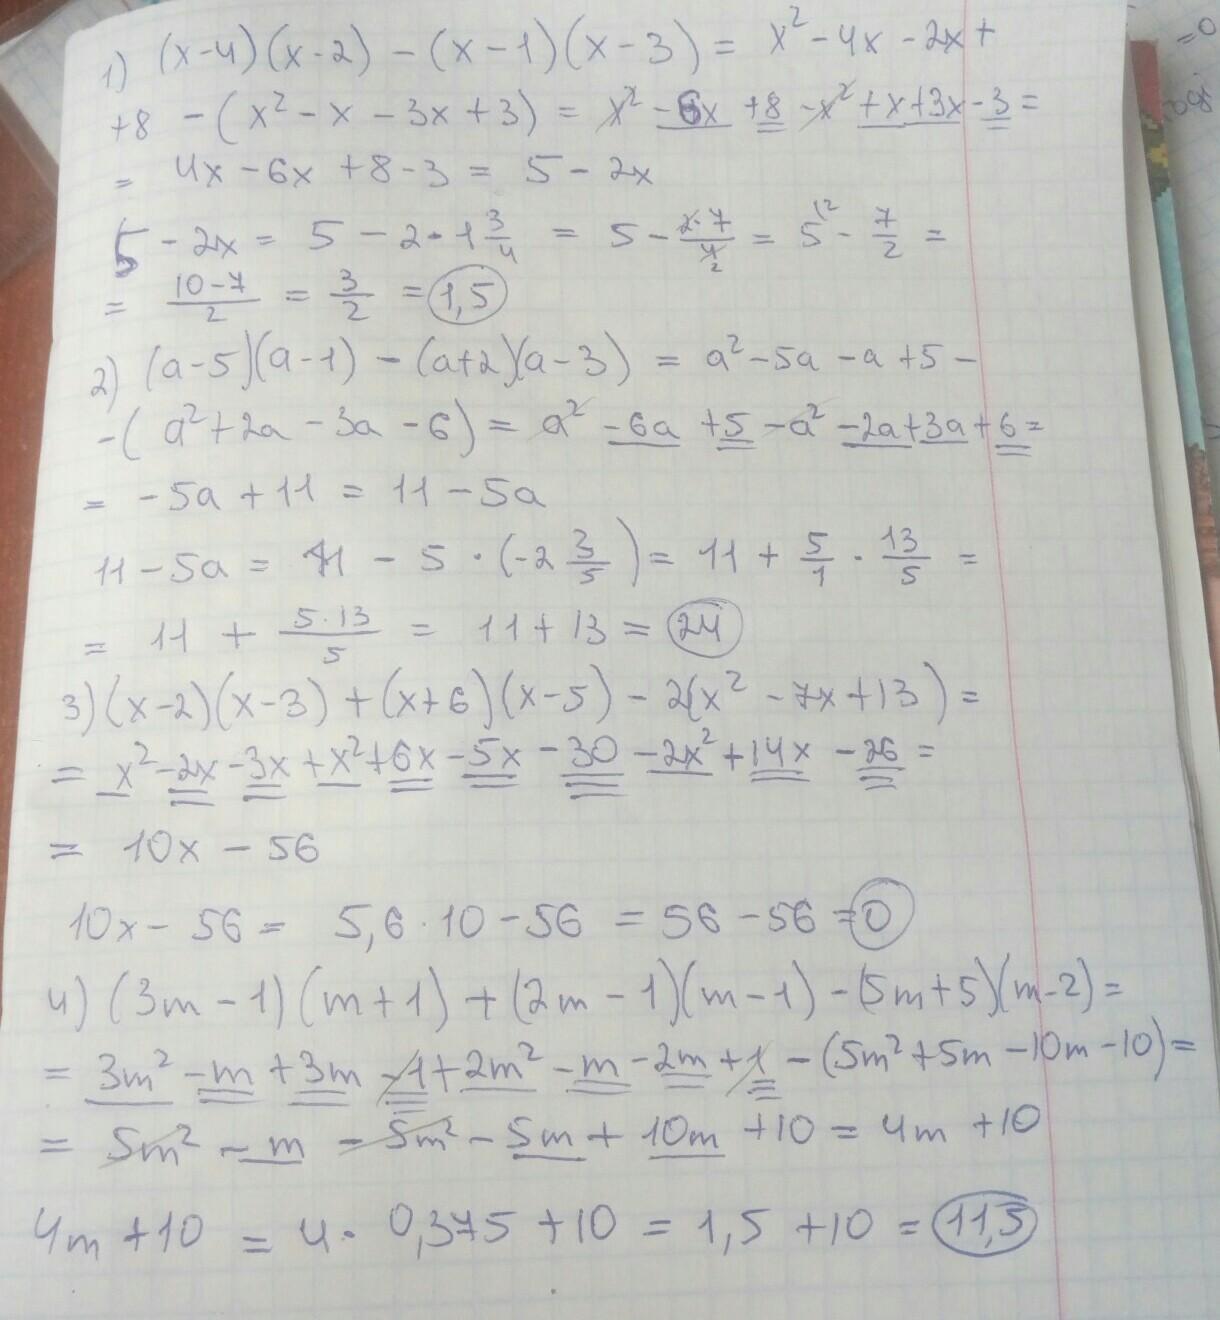 1) (x-4)(x-2) - (x-1)(x-3) = x² - 4x - 2x +
+8 - (x² - x - 3x + 3) = x² - 6x + 8 - x² + x + 3x - 3 =
= 4x - 6x + 8 - 3 = 5 - 2x
5 - 2x = 5 - 2 · 1 3/4 = 5 - 2·7/4 2 = 5 - 7/2 =
= 10-7/2 = 3/2 = 1,5
2) (a-5)(a-1) - (a+2)(a-3) = a² - 5a - a + 5 -
-( a² + 2a - 3a - 6) = a² - 6a + 5 - a² - 2a + 3a + 6 =
= - 5a + 11 = 11 - 5a
11 - 5a = 11 - 5 · (-2 3/5) = 11 + 5/1 · 13/5 =
= 11 + 5·13/5 = 11 + 13 = 24
3) (x-2)(x-3) + (x+6)(x-5) - 2(x² - 7x + 13) =
= x² - 2x - 3x + x² + 6x - 5x - 30 - 2x² + 14x - 26 =
= 10x - 56
10x - 56 = 5,6 · 10 - 56 = 56 - 56 = 0
4) (3m - 1)(m + 1) + (2m - 1)(m - 1) - (5m + 5)(m - 2) =
= 3m² - m + 3m - 1 + 2m² - m - 2m + 1 - (5m² + 5m - 10m - 10) =
= 5m² - m - 5m² - 5m + 10m + 10 = 4m + 10
4m + 10 = 4 · 0,375 + 10 = 1,5 + 10 = 11,5